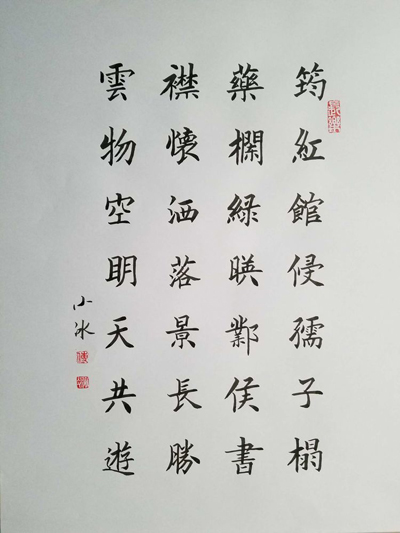 筠紅館侵孺子榻
藥欄綠暎鄴侯書
襟懷洒落景長勝
雲物空明天共遊
小冰